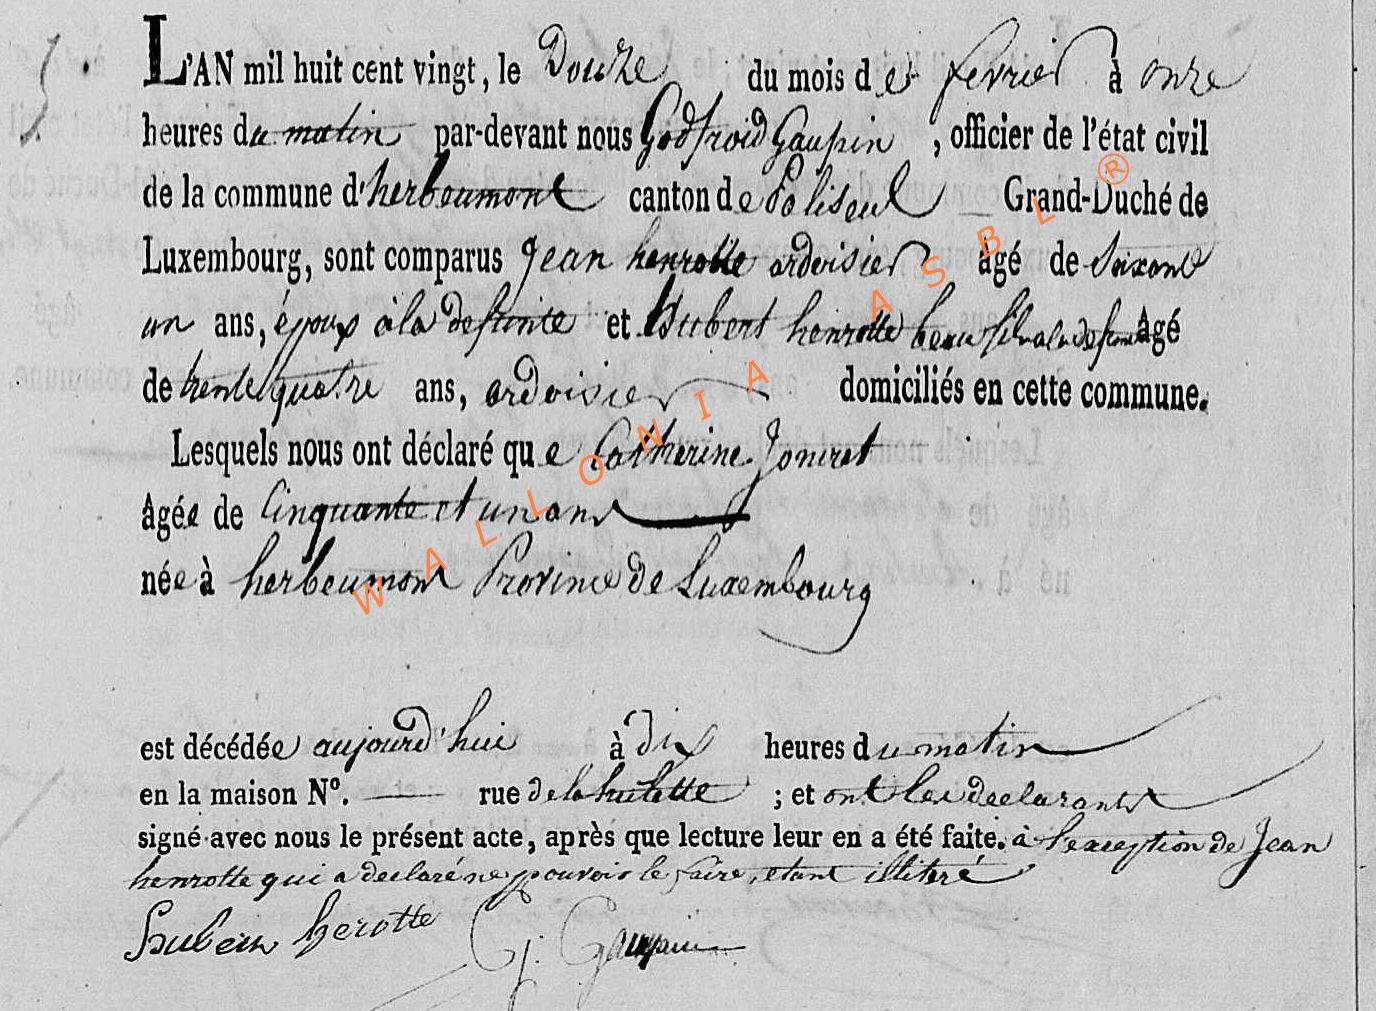 L'AN mil huit cent vingt, le Douze du mois de fevrier à onze
heures du matin par-devant nous Godfroid Gaupin, officier de l'état civil
de la commune d'herbeumont canton de Paliseul Grand-Duché de
Luxembourg, sont comparus Jean henrotte ardoisier âgé de Soixante
un ans, époux à la defunte et Hubert henrotte beau fils a la defunte âgé
de trente quatre ans, ardoisier domiciliés en cette commune.
Lesquels nous ont déclaré que Catherine
âgée de Cinquante et un ans
née à herbeumont Province de Luxembourg
est décédée aujourd'hui à dix heures du matin
en la maison N°. rue de la hulette ; et ont les declarants
signé avec nous le présent acte, après que lecture leur en a été faite. à l'exception de Jean
henrotte qui a declaré ne pouvoir le faire, etant illiteré
Hubert herotte G. Gaupin
WALLONIA ASBL ®